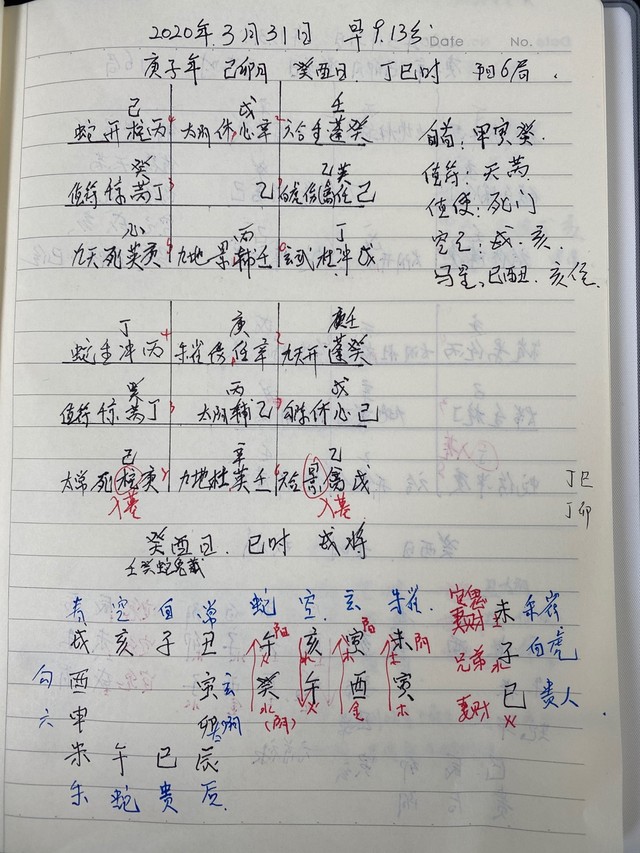 2020年.3月31日 早9.13分
Date No.
庚子年 己卯月 癸酉日 丁巳时 阳6局.
己 戊 壬
蛇开柱丙 太阴休心辛 六合生蓬癸 旬首:甲寅癸.
癸 乙 癸 值符:天芮.
值符惊芮丁 乙 白虎伤任己 值使:死门
丙 丁 空亡:戌.亥.
九天死英庚 九地景辅壬 玄武杜冲戊 马星:巳酉丑.亥位.
丁 庚 庚壬
蛇生冲丙 朱雀伤任辛 九天开蓬癸
癸 丙 戊
值符惊芮丁 太阴辅乙 休心己
己 辛 乙
太常死柱庚 九地杜英壬 六合景禽戊
入墓 入墓
丁巳
丁卯
癸酉日.巳时 戌将
壬癸蛇兔藏
青 空 白 常 蛇 空 玄 朱雀. 官鬼 未 朱雀
戌 亥 子 丑 午 亥 寅 未 妻财 土
勾 酉 寅 玄 癸 午 酉 寅 兄弟 子 白虎
六 申 卯 阴 水(阴) 火 金 木 妻财 巳 贵人
未 午 巳 辰 火
朱 蛇 贵 后